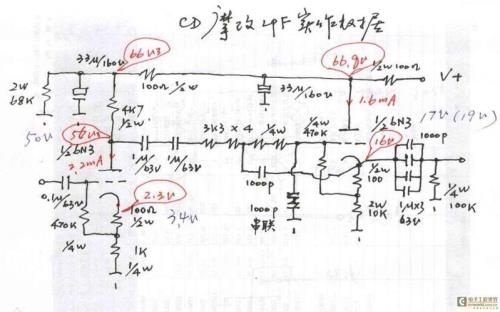 CD 摩改 4F 实作数据
33μ/160v
66v3
66.9v
1/2w 100Ω
V+
2W
68K
100Ω 1/2w
33μ/160v
1.6mA
4K7
1/2w
50v
56v5
1/2 6N3
2.2mA
3K3 × 4
1/4w
1/4w
470K
1/2 6N3
17v (19v)
1000p
1μ
63v
1μ
63v
16v
0.1μ/63v
2.3v
100Ω
1/2w
3.4v
1000p
1000p
串联
1/2w
100
2W
10K
1μ×3
63v
1/4w
100K
470K
1/4w
1K
1/4w